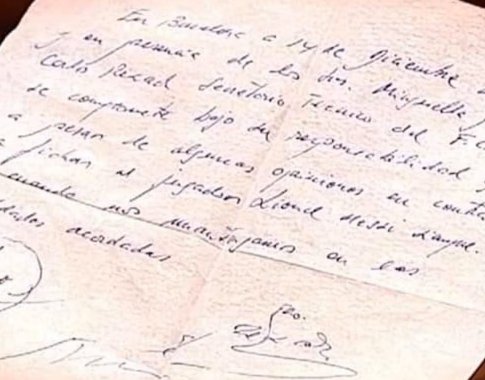 En Barcelona a 14 de Diciembre d
y en presencia de los Sres. Minguella y
Carlos Rexach Secretario Técnico del F.C.
se compromete bajo su responsabilidad
a pesar de algunas opiniones en contra
fichar al jugador Lionel Messi siempre
cuando nos mantengamos en las
dades acordadas